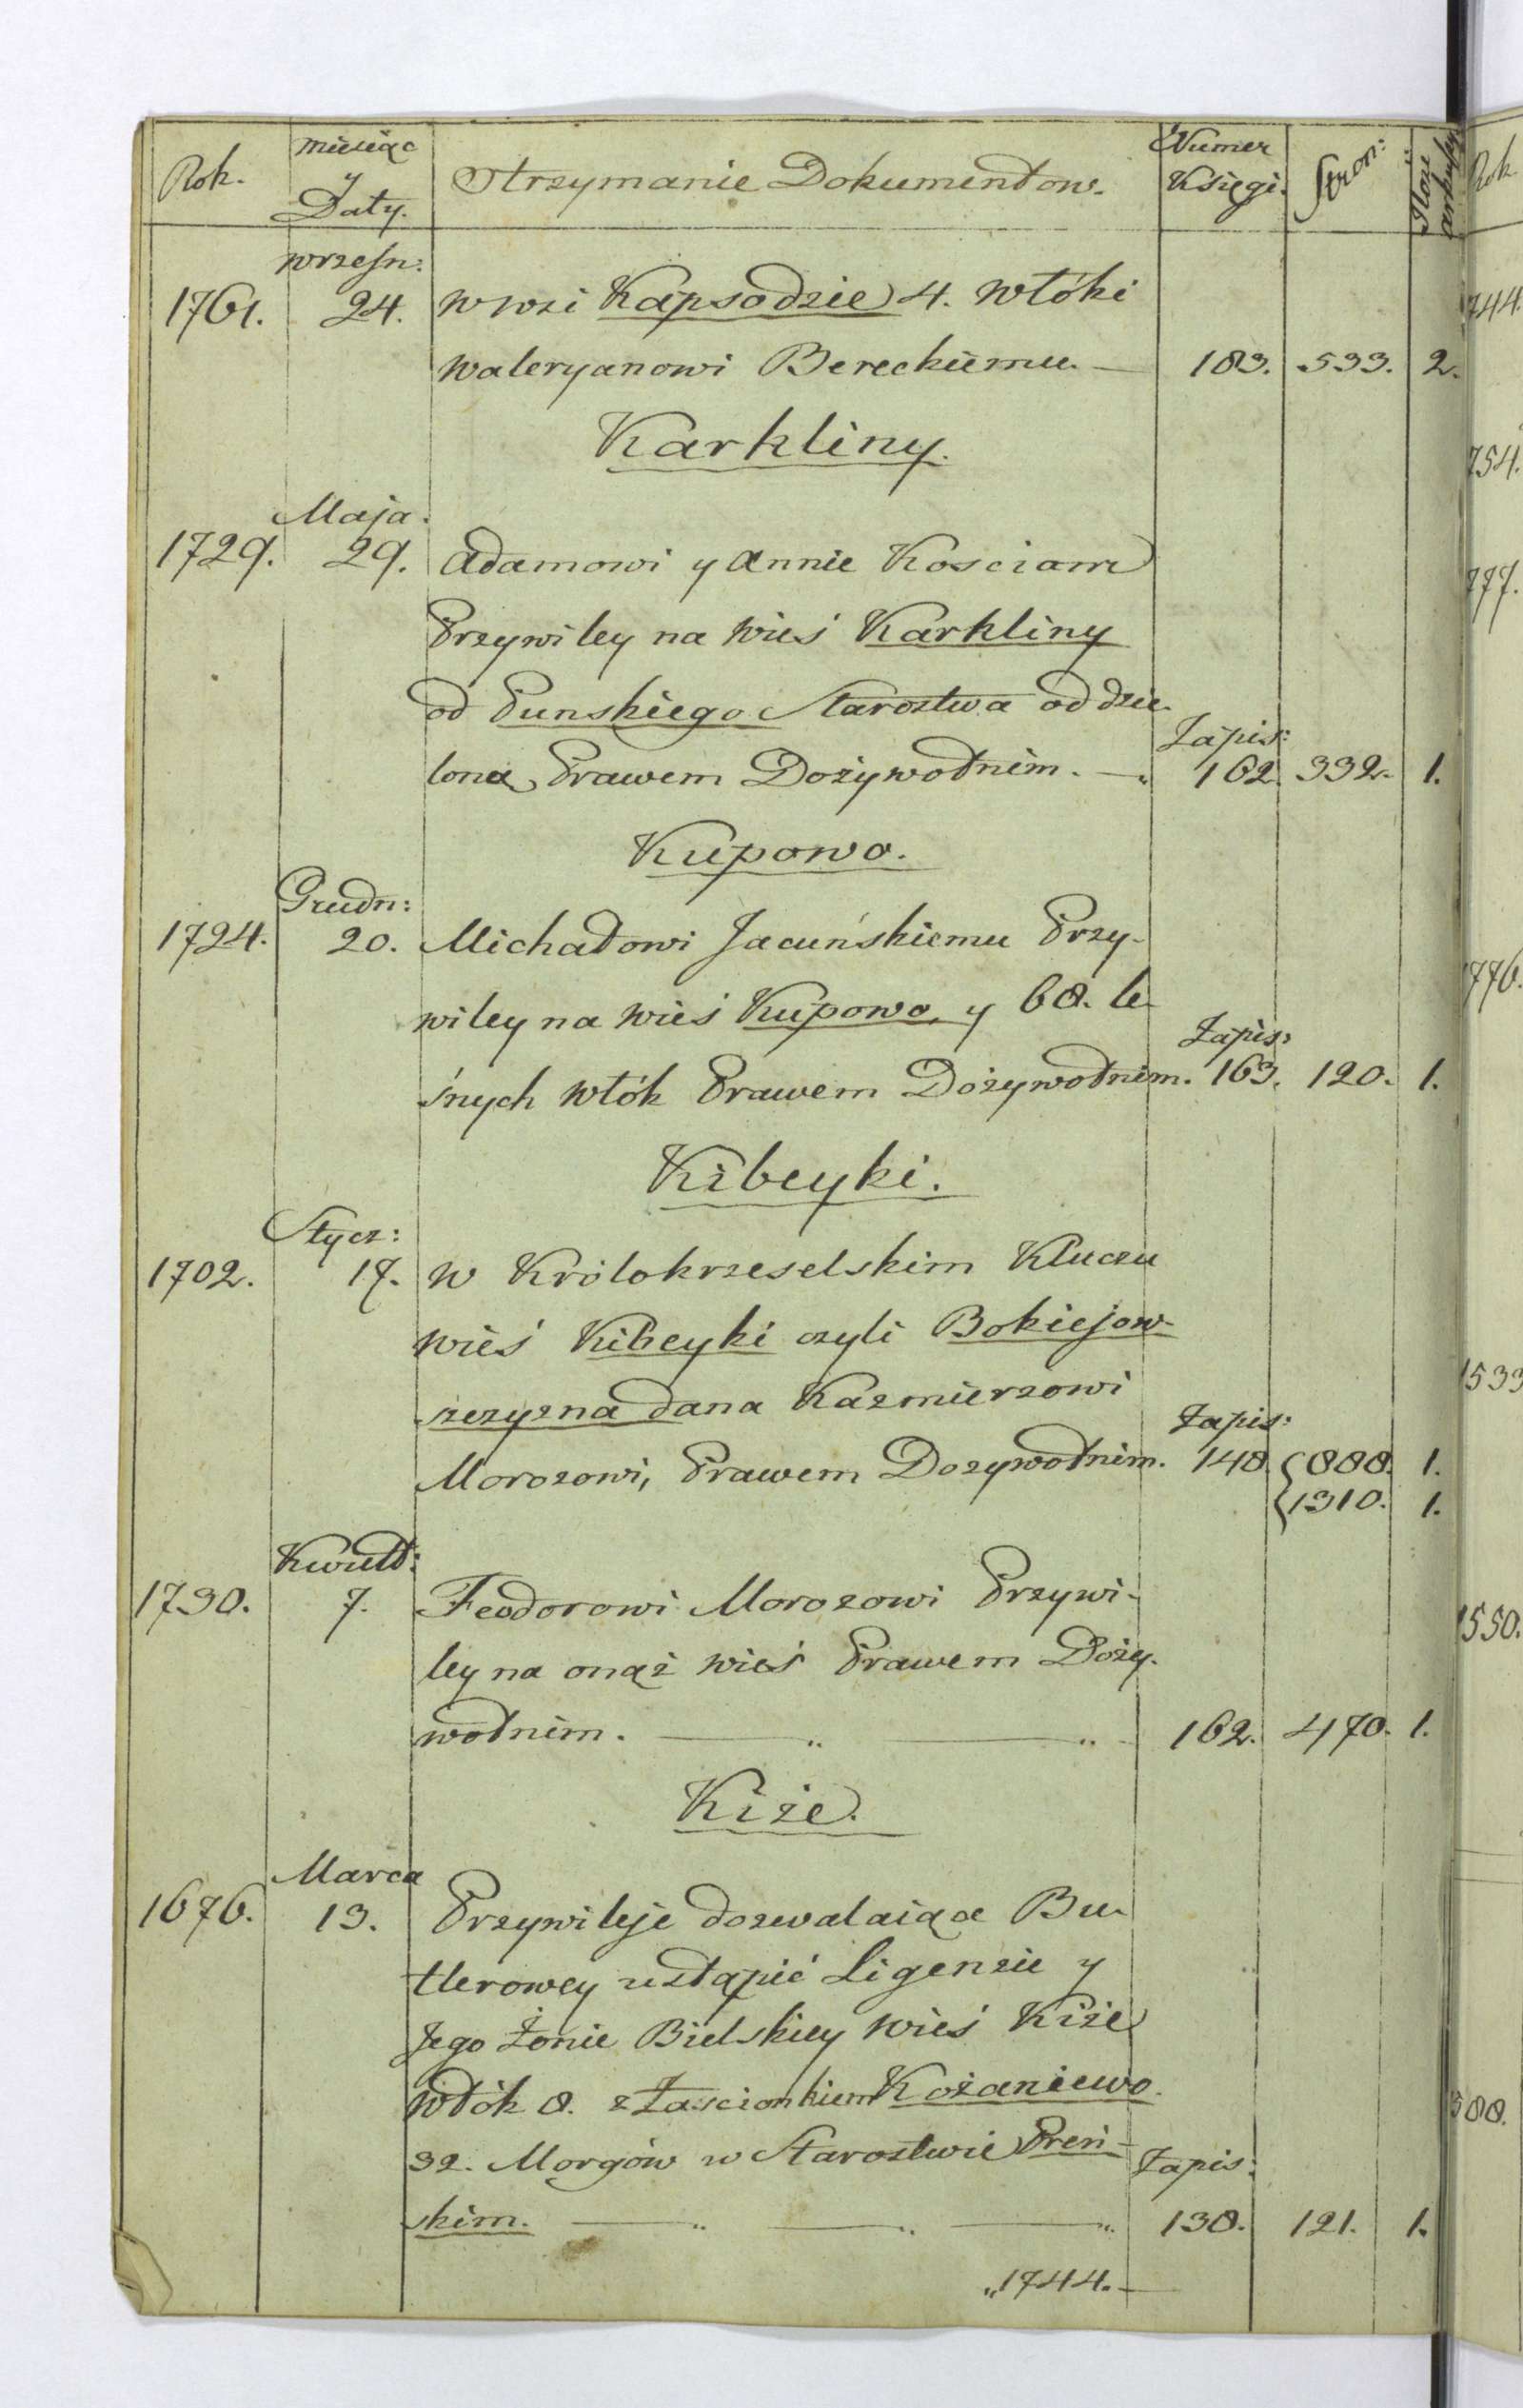 Rok. miesiąc y Daty. Otrzymanie Dokumentow. Numer Księgi. Stron: Ilość arkuszy
wrześn:
1761. 24. w wsi Kapsodzie 4. włóki
waleryanowi Bereckiemu. — 183. 533. 2.
Karkliny.
Maja.
1729. 29. Adamowi y Annie Kosciom
Przywiley na wieś Karkliny
od Punskiego Starostwa oddzie-
lona, Prawem Dożywotnim. — Zapis: 162. 332. 1.
Kupowo.
Grudn:
1724. 20. Michałowi Jacuńskiemu Przy-
wiley na wieś Kupowo, y 68. le-
śnych włók Prawem Dożywotnim. Zapis: 163. 120. 1.
Kibeyki.
Stycz:
1702. 17. w Królokrzeselskim Kluczu
wieś Kibeyki czyli Bokiejow-
szczyzna dana Kazmierzowi
Morozowi, Prawem Dozywotnim. Zapis: 148. { 888. 1.
{ 1310. 1.
Kwiet:
1730. 7. Feodorowi Morozowi Przywi-
ley na onąż wieś Prawem Doży-
wotnim. — „ — „ 162. 470. 1.
Kiże.
Marca
1676. 13. Przywileje dozwalaiące Bu-
tlerowey ustąpić Ligenzie y
Jego Żonie Bielskiey wieś Kiże
włók 8. z Zascionkiem Kożaniewo
32. Morgów w Starostwie Preń-
skim. — „ — „ — „ Zapis: 138. 121. 1.
„1744. —
Rok
744.
754.
777.
1776.
1533
1550.
588.